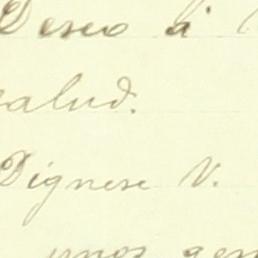 Deseo á
salud.
Dignese V.
unos